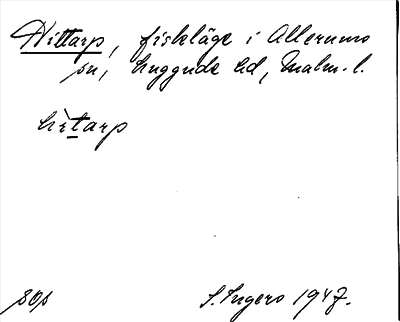 Hittarp, fiskläge i Allerums
sn, Luggude hd, Malm. l.
hìtarp
sop
S. Ingers 1947.